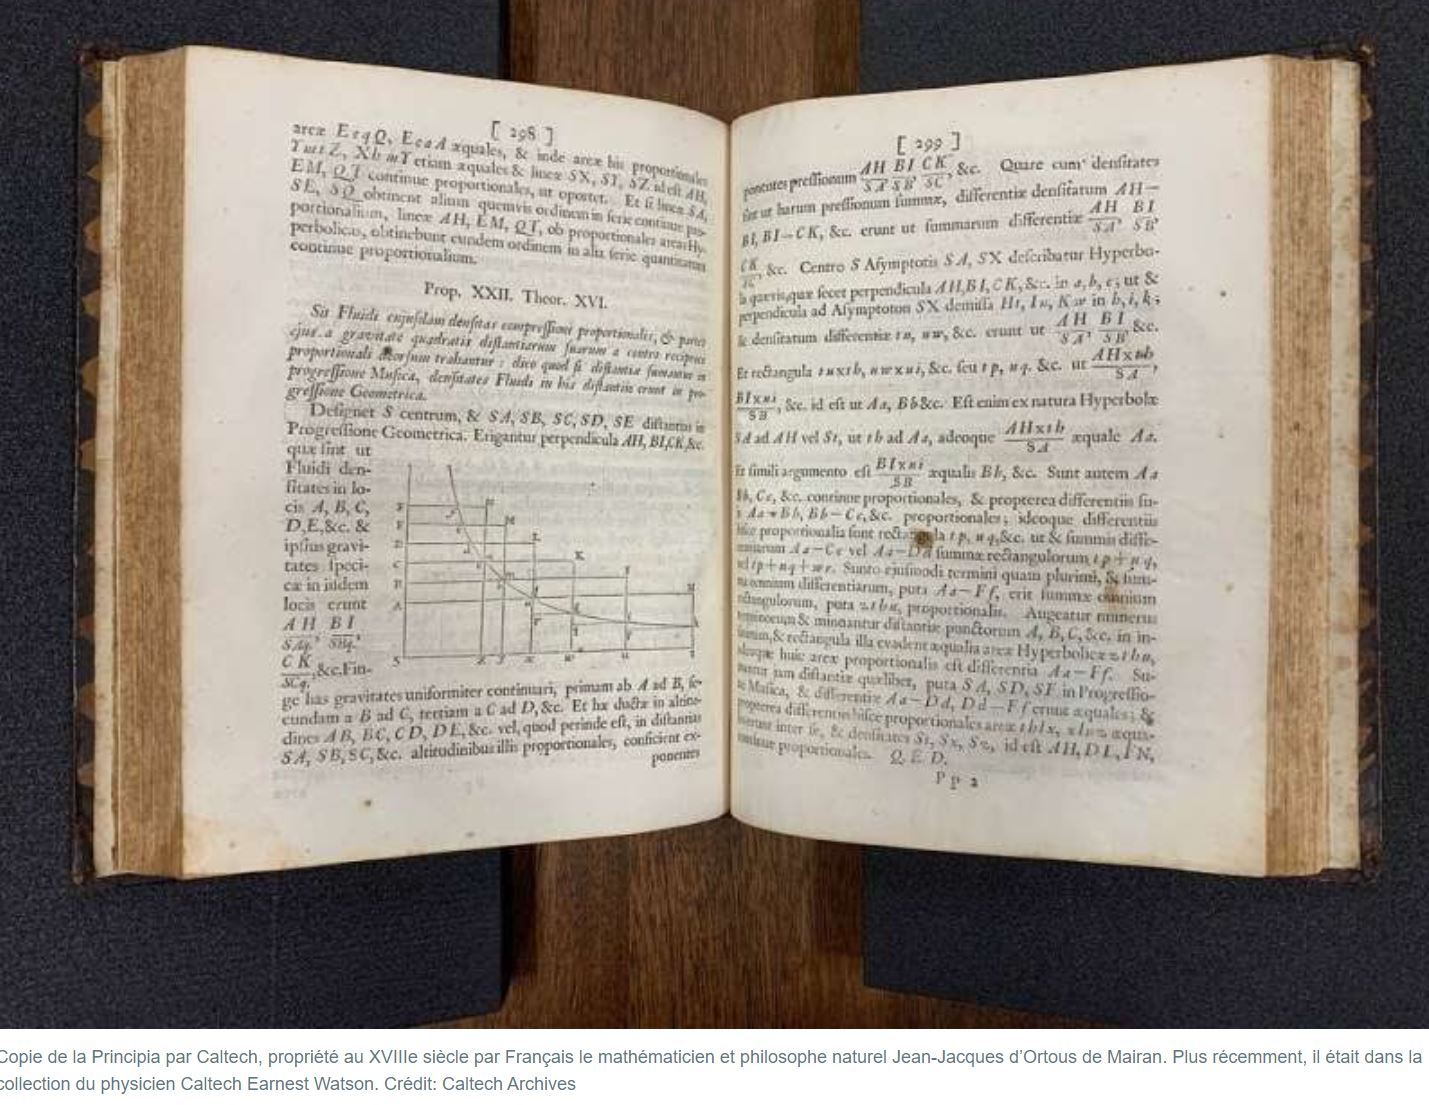 [ 298 ]
areæ EeqQ, EeaA æquales, & inde areæ his proportionales
etiam æquales & lineæ SX, ST, SZ id est AH,
EM, QT continue proportionales, ut oportet. Et si lineæ SA,
SE, SQ obtinent alium quemvis ordinem in serie continue pro-
portionalium, lineæ AH, EM, QT, ob proportionales areas Hy-
perbolicas, obtinebunt eundem ordinem in alia serie quantitatum
continue proportionalium.
Prop. XXII. Theor. XVI.
Sit Fluidi cujusdam densitas compressioni proportionalis, & partes
ejus a gravitate quadratis distantiarum suarum a centro reciproce
proportionali deorsum trahantur : dico quod si distantiæ sumantur in
progressione Musica, densitates Fluidi in his distantiis erunt in pro-
gressione Geometrica.
Designet S centrum, & SA, SB, SC, SD, SE distantias in
Progressione Geometrica. Erigantur perpendicula AH, BI, CK, &c.
quæ sint ut
Fluidi den-
sitates in lo-
cis A, B, C,
D, E, &c. &
ipsius gravi-
tates speci-
cæ in iisdem
locis erunt
AH BI
SAq. SBq.
CK &c. Fin-
SCq.
ge has gravitates uniformiter continuari, primam ab A ad B, se-
cundam a B ad C, tertiam a C ad D, &c. Et hæ ductæ in altitu-
dines AB, BC, CD, DE, &c. vel, quod perinde est, in distantias
SA, SB, SC, &c. altitudinibus illis proportionales, conficient ex-
ponentes
[ 299 ]
ponentes pressionum AH/SA, BI/SB, CK/SC, &c. Quare cum densitates
sint ut harum pressionum summæ, differentiæ densitatum AH −
BI, BI − CK, &c. erunt ut summarum differentiæ AH/SA, BI/SB,
CK/SC, &c. Centro S Asymptotis SA, SX describatur Hyperbo-
la quævis, quæ secet perpendicula AH, BI, CK, &c. in a, b, c; ut &
perpendicula ad Asymptoton SX demissa Ht, Iu, Kw in h, i, k;
& densitatum differentiæ tu, uw, &c. erunt ut AH/SA, BI/SB, &c.
Et rectangula tu×th, uw×ui, &c. seu tp, uq, &c. ut AH×th/SA,
BI×ui/SB, &c. id est ut Aa, Bb &c. Est enim ex natura Hyperbolæ
SA ad AH vel St, ut th ad Aa, adeoque AH×th/SA æquale Aa.
Et simili argumento est BI×ui/SB æqualis Bb, &c. Sunt autem Aa
Bb, Cc, &c. continue proportionales, & propterea differentiis su-
is Aa − Bb, Bb − Cc, &c. proportionales; ideoque differentiis
hisce proportionalia sunt rectangula tp, uq, &c. ut & summis diffe-
rentiarum Aa − Cc vel Aa − Dd summæ rectangulorum tp + uq,
vel tp + uq + wr. Sunto ejusmodi termini quam plurimi, & sum-
ma omnium differentiarum, puta Aa − Ff, erit summæ omnium
rectangulorum, puta zthn, proportionalis. Augeatur numerus
terminorum & minuantur distantiæ punctorum A, B, C, &c. in in-
finitum, & rectangula illa evadent æqualia areæ Hyperbolicæ zthn,
adeoque huic areæ proportionalis est differentia Aa − Ff. Su-
mantur jam distantiæ quælibet, puta SA, SD, SF in Progressio-
ne Musica, & differentiæ Aa − Dd, Dd − Ff erunt æquales; &
propterea differentiis hisce proportionales areæ thlx, xlnz æqua-
les erunt inter se, & densitates St, Sx, Sz, id est AH, DL, FN,
continue proportionales. Q. E. D.
Pp 2
Copie de la Principia par Caltech, propriété au XVIIIe siècle par Français le mathématicien et philosophe naturel Jean-Jacques d’Ortous de Mairan. Plus récemment, il était dans la
collection du physicien Caltech Earnest Watson. Crédit: Caltech Archives